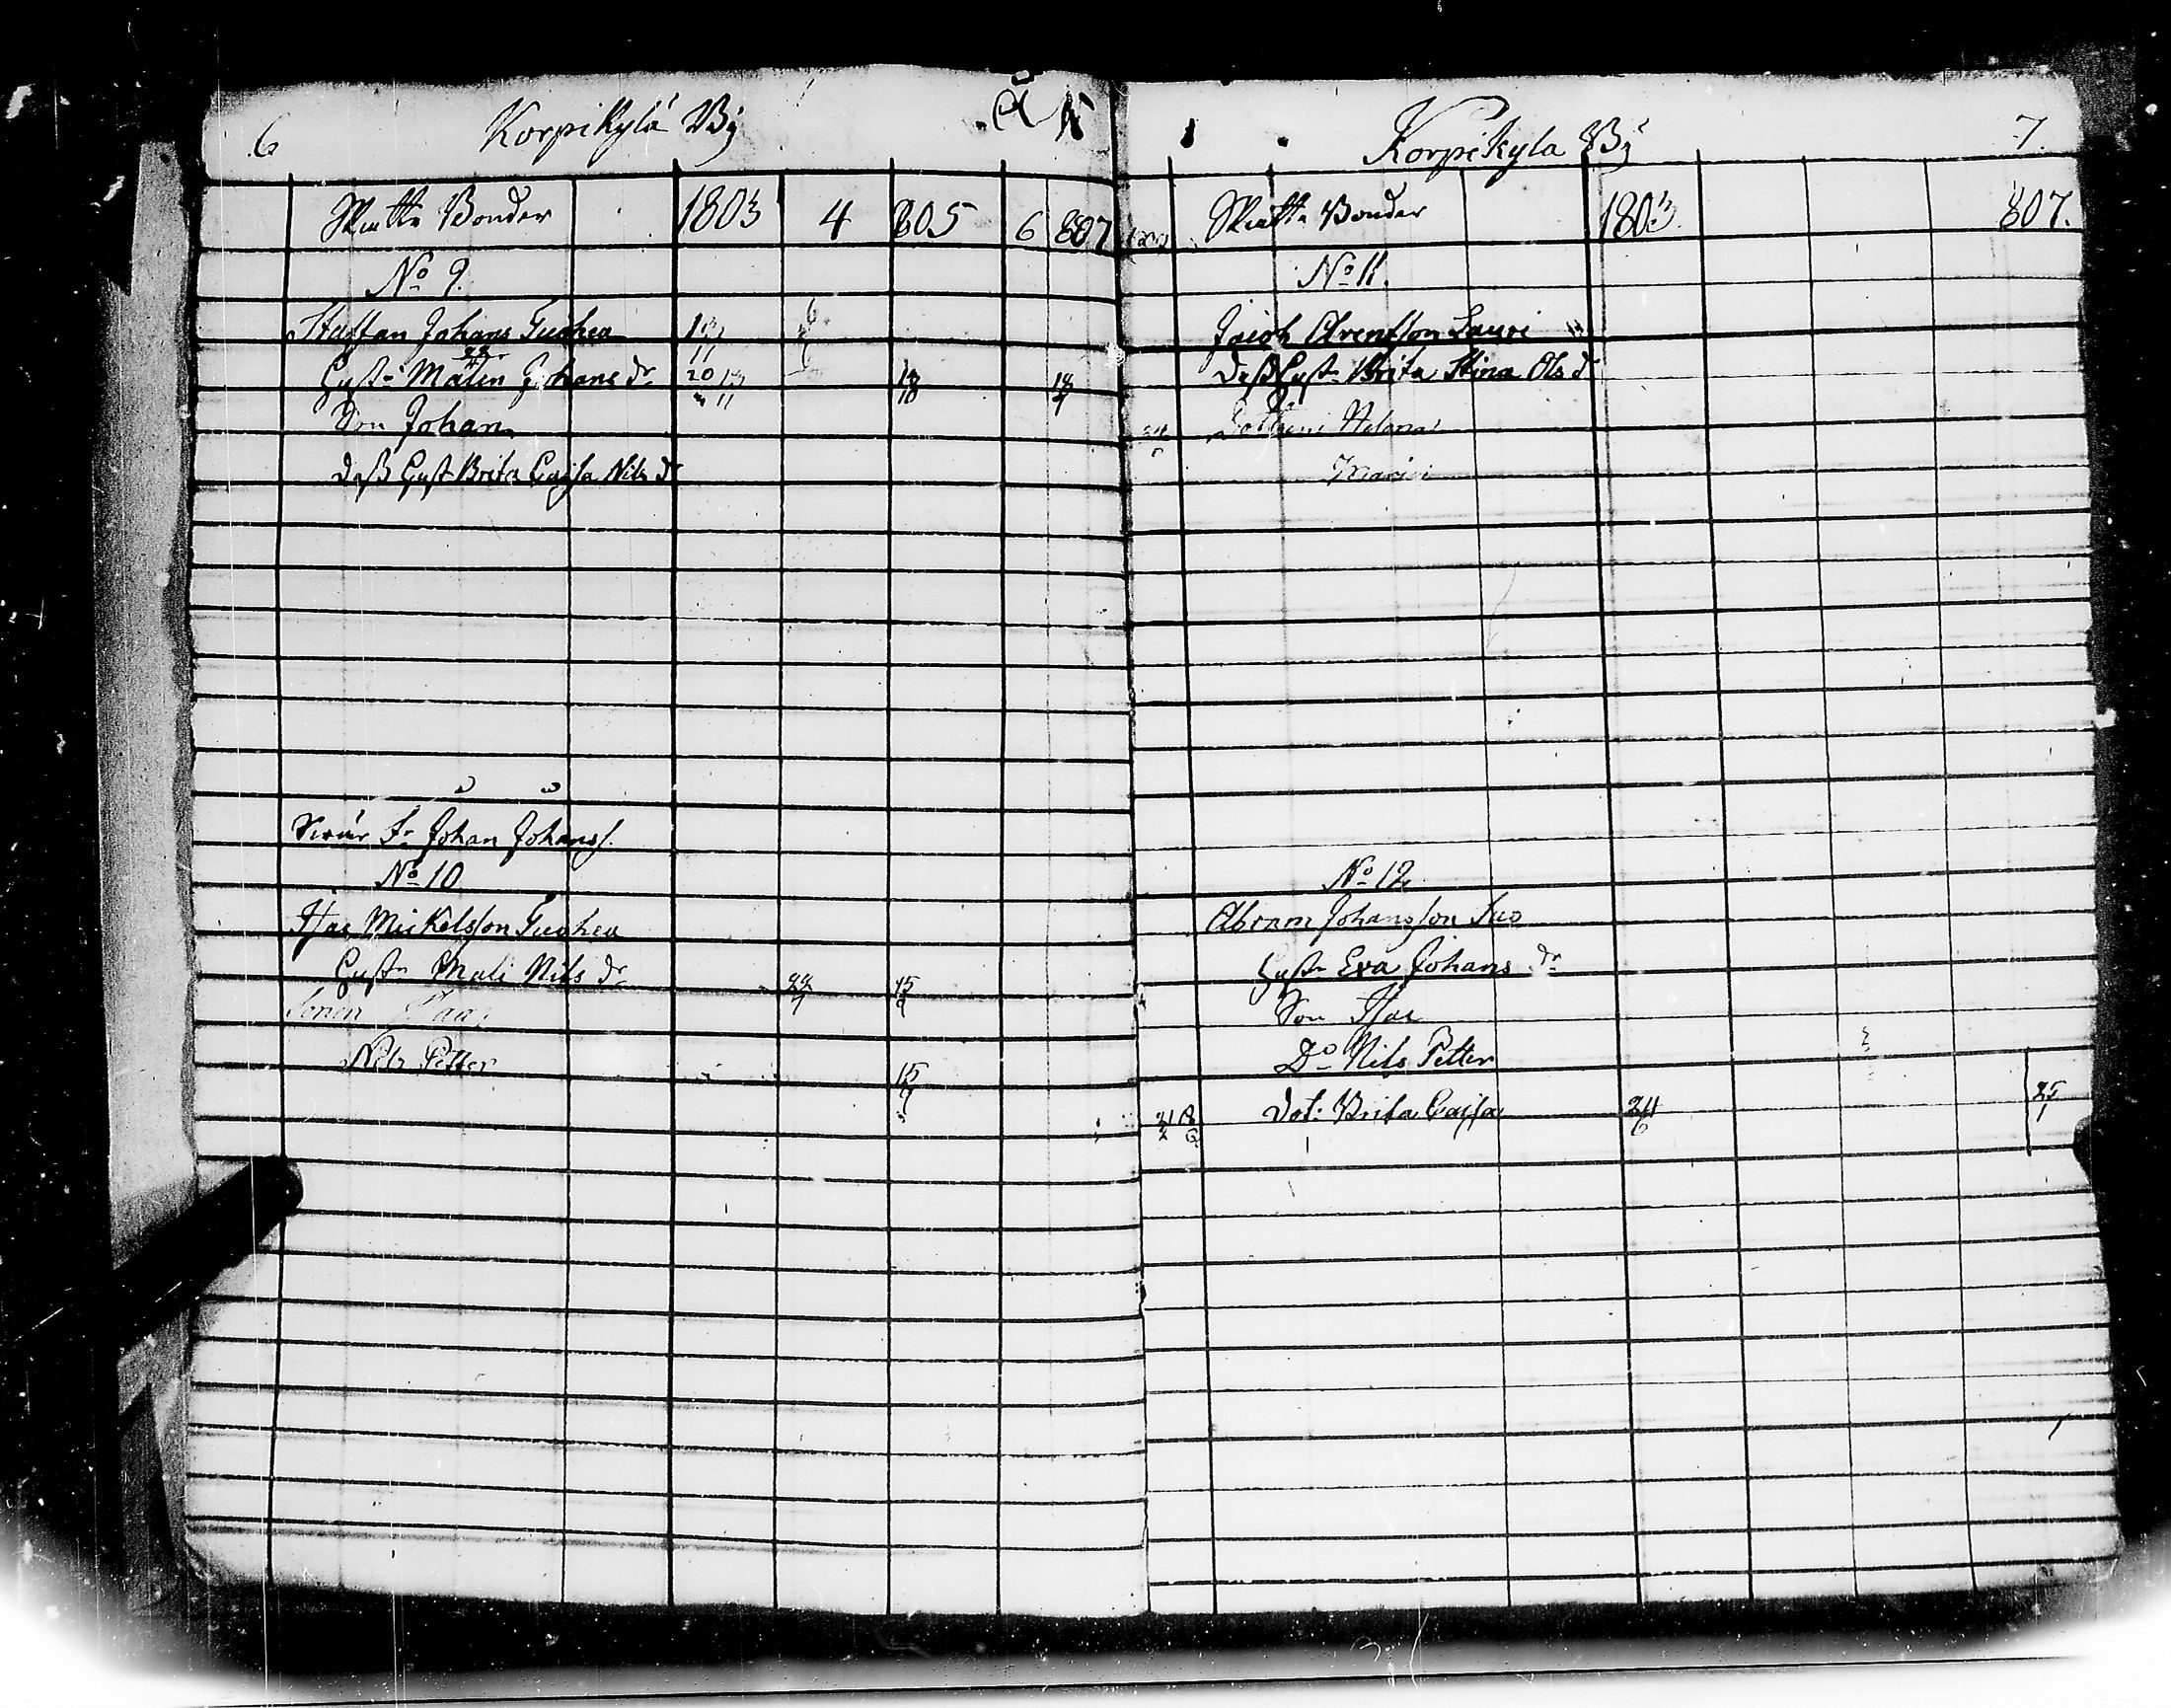 6 Korpikylä By
Skatte Bönder 1803 4 805 6 807
No 9.
Staffan Johans Tuohea 13 11
Hust. Malin Johans dr 20 13 11 18 10 18
Son Johan
Dess Hust Brita Cajsa Nils dr
Svär Fr Johan Johanss.
No 10
Isac Mickelsson Tuohea
Hust Mali Nils dr 15
Sonen Isaac
Nils Petter 15
Korpikyla By 7.
Skatte Bönder 1803 807.
No 11.
Arentsson Lauri
Dess Hust. Brita Stina Ols dr
Helena
Maria
No 12.
Abram Johansson Suo
Hust Eva Johans dr
Son Isac
Do Nils Petter
Dot: Brita Cajsa 24 6 25 1